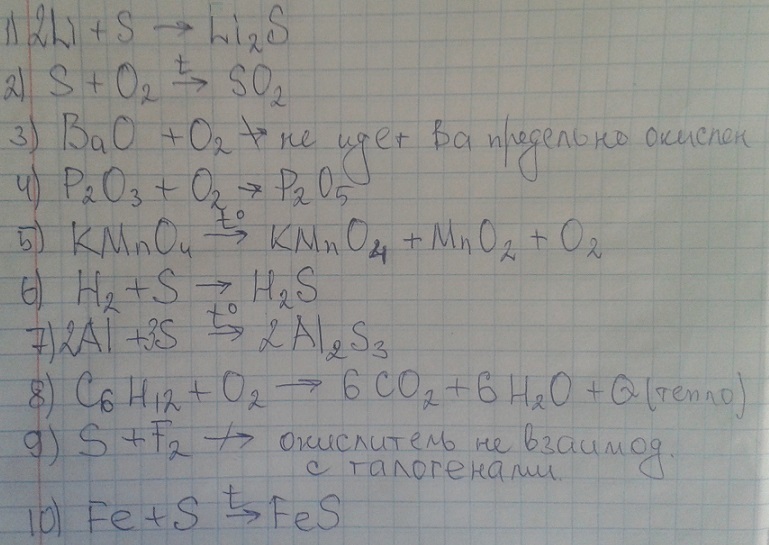 1) 2Li + S → Li₂S
2) S + O₂ →ᵗ SO₂
3) BaO + O₂ ↛ не идет Ba предельно окислен
4) P₂O₃ + O₂ → P₂O₅
5) KMnO₄ →ᵗ° KMnO₄ + MnO₂ + O₂
6) H₂ + S → H₂S
7) 2Al + 3S →ᵗ° 2Al₂S₃
8) C₆H₁₂ + O₂ → 6CO₂ + 6H₂O + Q (тепло)
9) S + F₂ ↛ окислитель не взаимод.
с галогенами.
10) Fe + S →ᵗ FeS